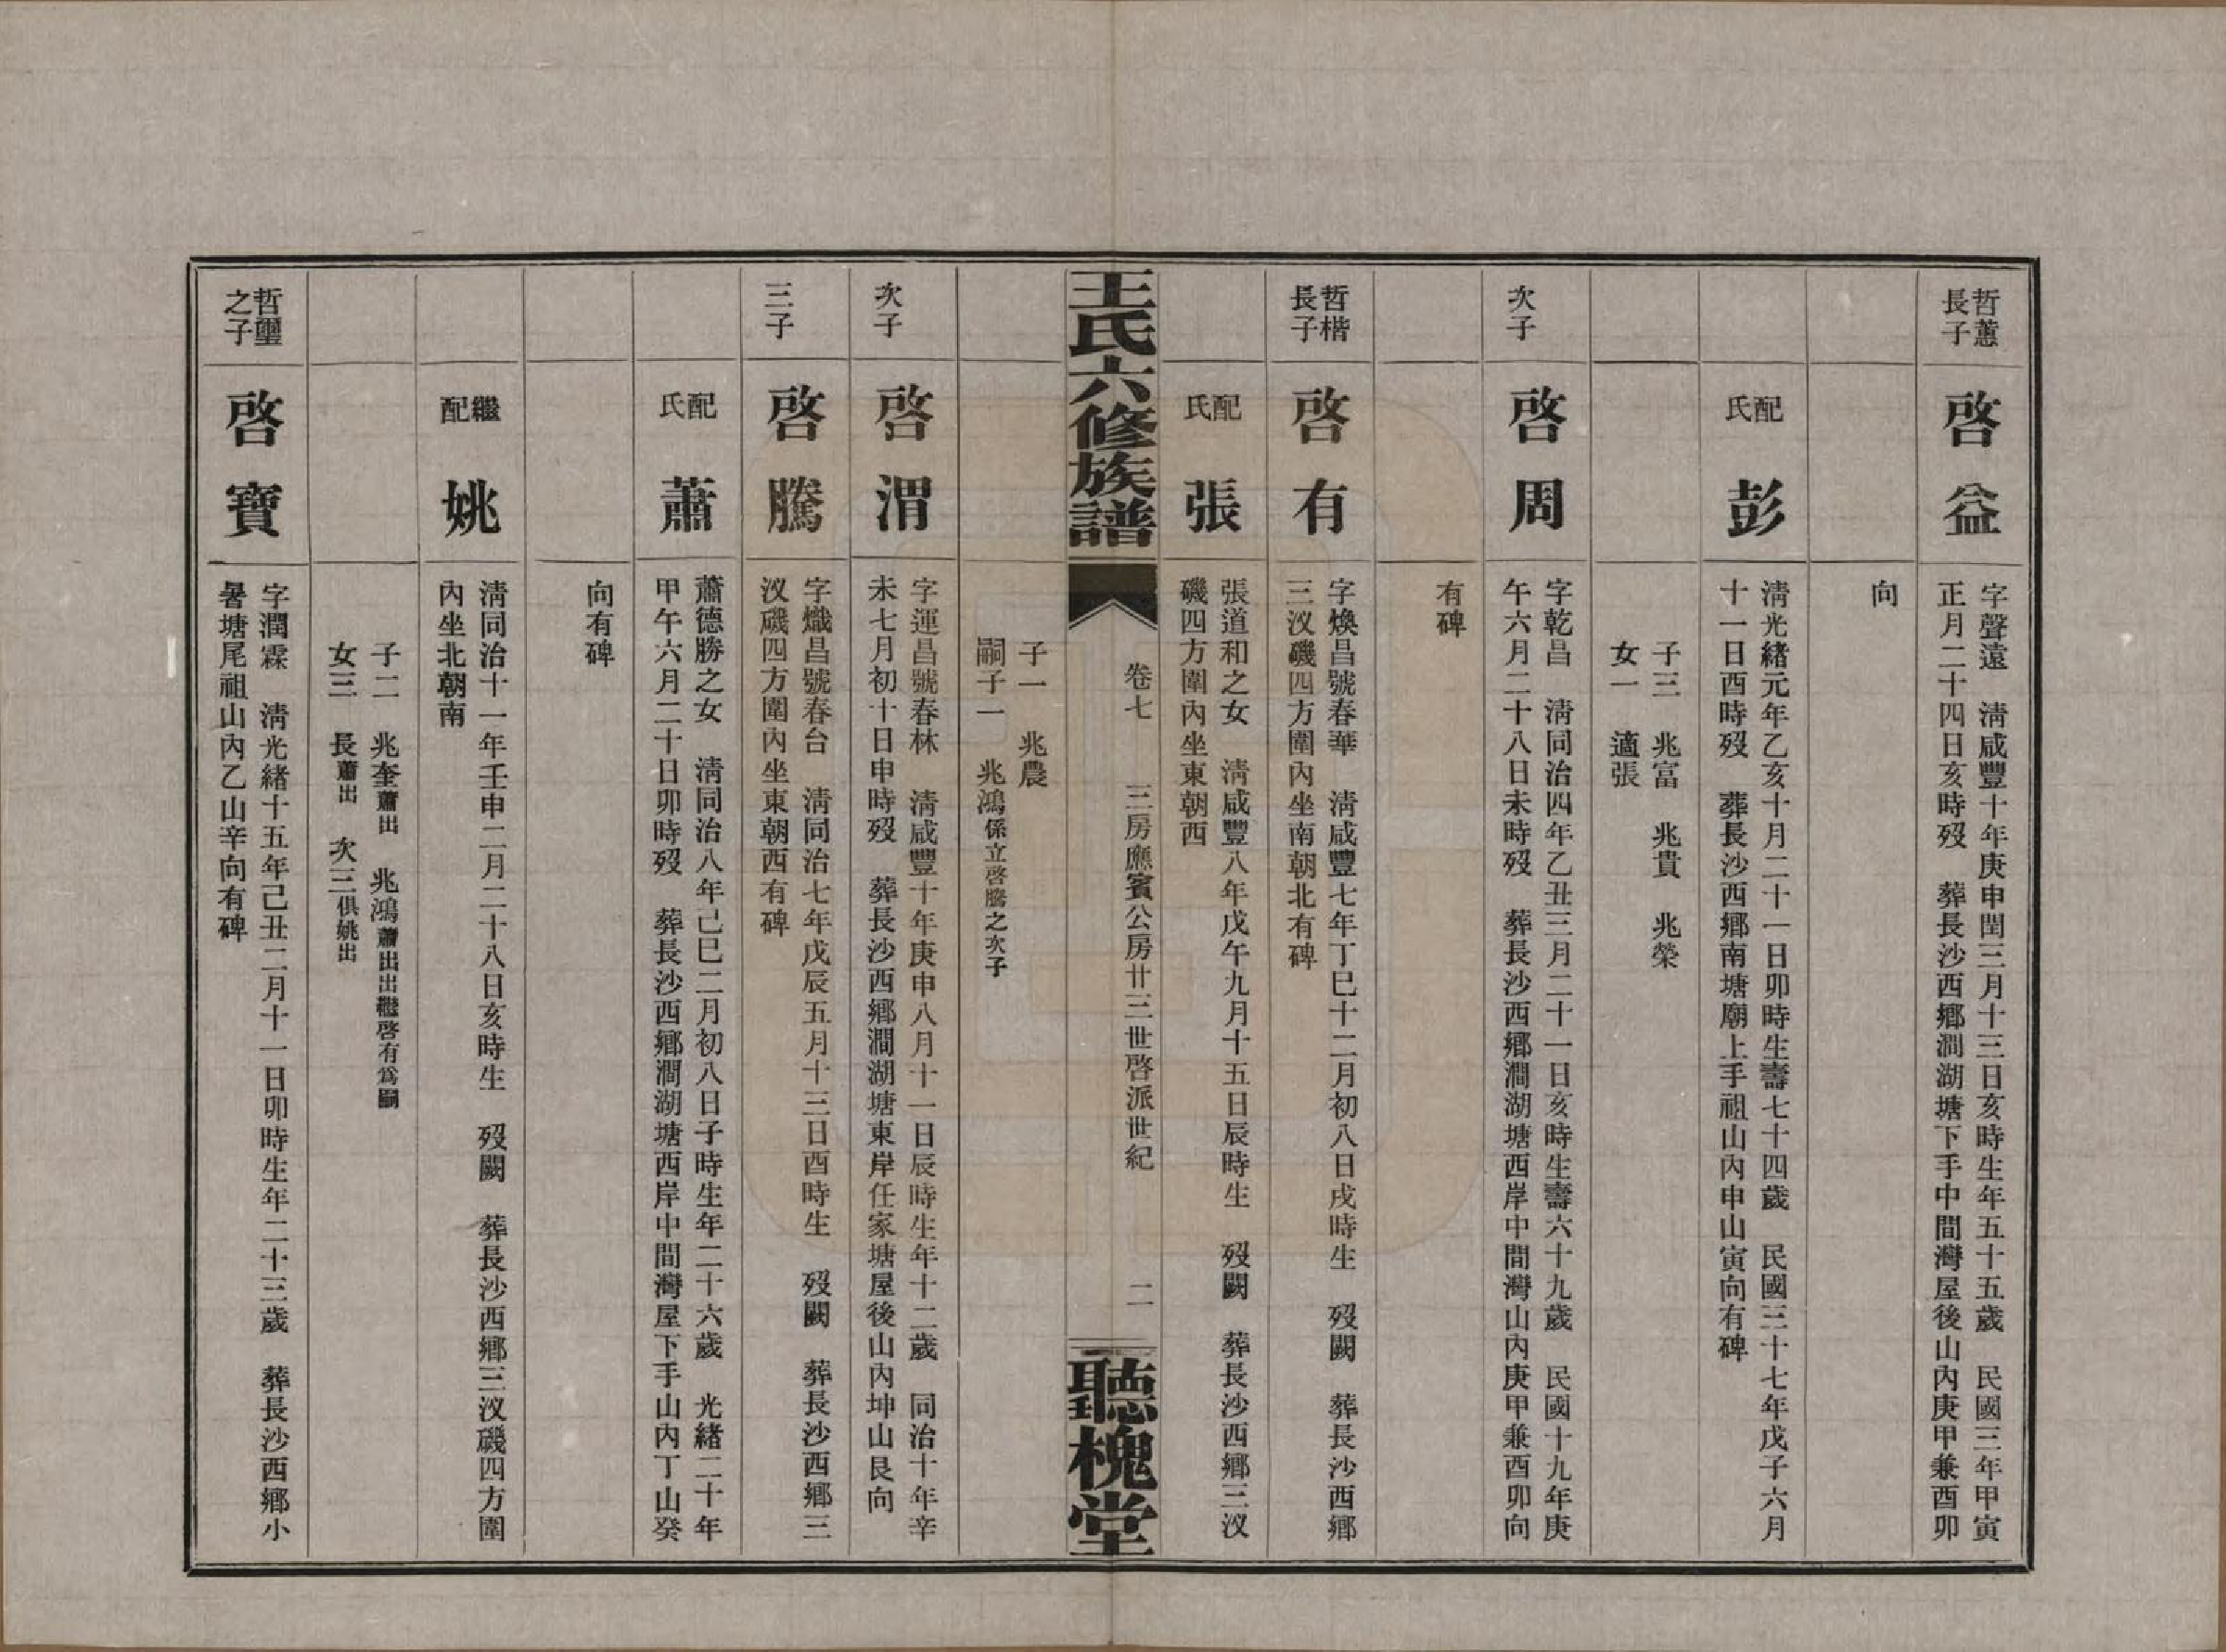 哲蕙
長子
啓益
字聲遠　清咸豐十年庚申閏三月十三日亥時生年五十五歲　民國三年甲寅
正月二十四日亥時歿　葬長沙西鄉澗湖塘下手中間灣屋後山內庚甲兼酉卯
向
配
氏
彭
清光緒元年乙亥十月二十一日卯時生壽七十四歲　民國三十七年戊子六月
十一日酉時歿　葬長沙西鄉南塘廟上手祖山內申山寅向有碑
子三　兆富　兆貴　兆榮
女一　適張
次子
啓周
字乾昌　清同治四年乙丑三月二十一日亥時生壽六十九歲　民國十九年庚
午六月二十八日未時歿　葬長沙西鄉澗湖塘西岸中間灣山內庚甲兼酉卯向
有碑
哲楷
長子
啓有
字煥昌號春華　清咸豐七年丁巳十二月初八日戌時生　歿闕　葬長沙西鄉
三汊磯四方圍內坐南朝北有碑
配
氏
張
張道和之女　清咸豐八年戊午九月十五日辰時生　歿闕　葬長沙西鄉三汊
磯四方圍內坐東朝西
王氏六修族譜
卷七　三房應賓公房廿三世啓派世紀　二
聽槐堂
子一　兆農
嗣子一　兆鴻係立啓騰之次子
次子
啓渭
字運昌號春林　清咸豐十年庚申八月十一日辰時生年十二歲　同治十年辛
未七月初十日申時歿　葬長沙西鄉澗湖塘東岸任家塘屋後山內坤山艮向
三子
啓騰
字熾昌號春台　清同治七年戊辰五月十三日酉時生　歿闕　葬長沙西鄉三
汊磯四方圍內坐東朝西有碑
配
氏
蕭
蕭德勝之女　清同治八年己巳二月初八日子時生年二十六歲　光緒二十年
甲午六月二十日卯時歿　葬長沙西鄉澗湖塘西岸中間灣屋下手山內丁山癸
向有碑
繼
配
姚
清同治十一年壬申二月二十八日亥時生　歿闕　葬長沙西鄉三汊磯四方圍
內坐北朝南
子二　兆奎蕭出　兆鴻蕭出出繼啓有爲嗣
女三　長蕭出　次三俱姚出
哲璽
之子
啓寶
字潤霖　清光緒十五年己丑二月十一日卯時生年二十三歲　葬長沙西鄉小
暑塘尾祖山內乙山辛向有碑